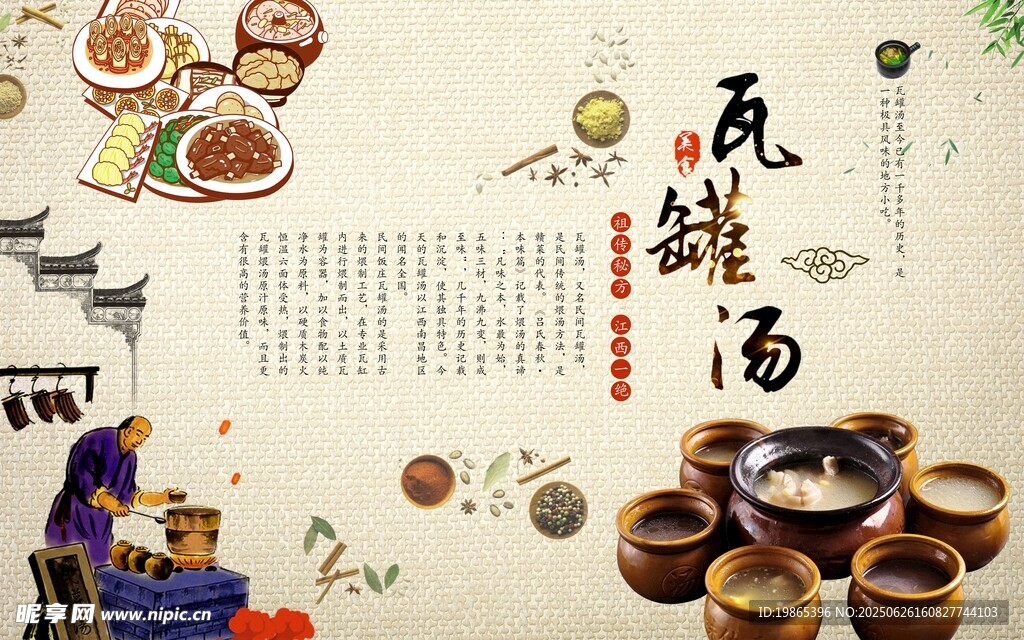 瓦罐汤
美食
瓦罐汤至今已有一千多年的历史，是
一种极具风味的地方小吃。
祖传秘方
江西一绝
瓦罐汤，又名民间瓦罐汤，
是民间传统的煨汤方法，是
赣菜的代表。《吕氏春秋·
本味篇》记载了煨汤的真谛
：“凡味之本，水最为始，
五味三材，九沸九变，则成
至味”，几千年的历史记载
和沉淀，使其独具特色。今
天的瓦罐汤以江西南昌地区
的闻名全国。
民间饭庄瓦罐汤的是采用古
来的煨制工艺，在专业瓦缸
内进行煨制而出，以土质瓦
罐为容器，加以食物配以纯
净水为原料，以硬质木炭火
恒温六面体受热，煨制出的
瓦罐煨汤原汁原味，而且更
含有很高的营养价值。
昵享网 www.nipic.cn
ID:19865396 NO:20250626160827744103